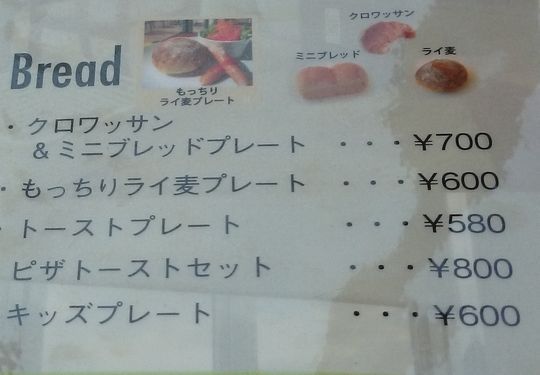 クロワッサン
ミニブレッド
ライ麦
Bread
もっちり
ライ麦プレート
・クロワッサン
&ミニブレッドプレート ・・・¥700
・もっちりライ麦プレート ・・・¥600
・トーストプレート ・・・¥580
ピザトーストセット ・・・¥800
キッズプレート ・・・¥600